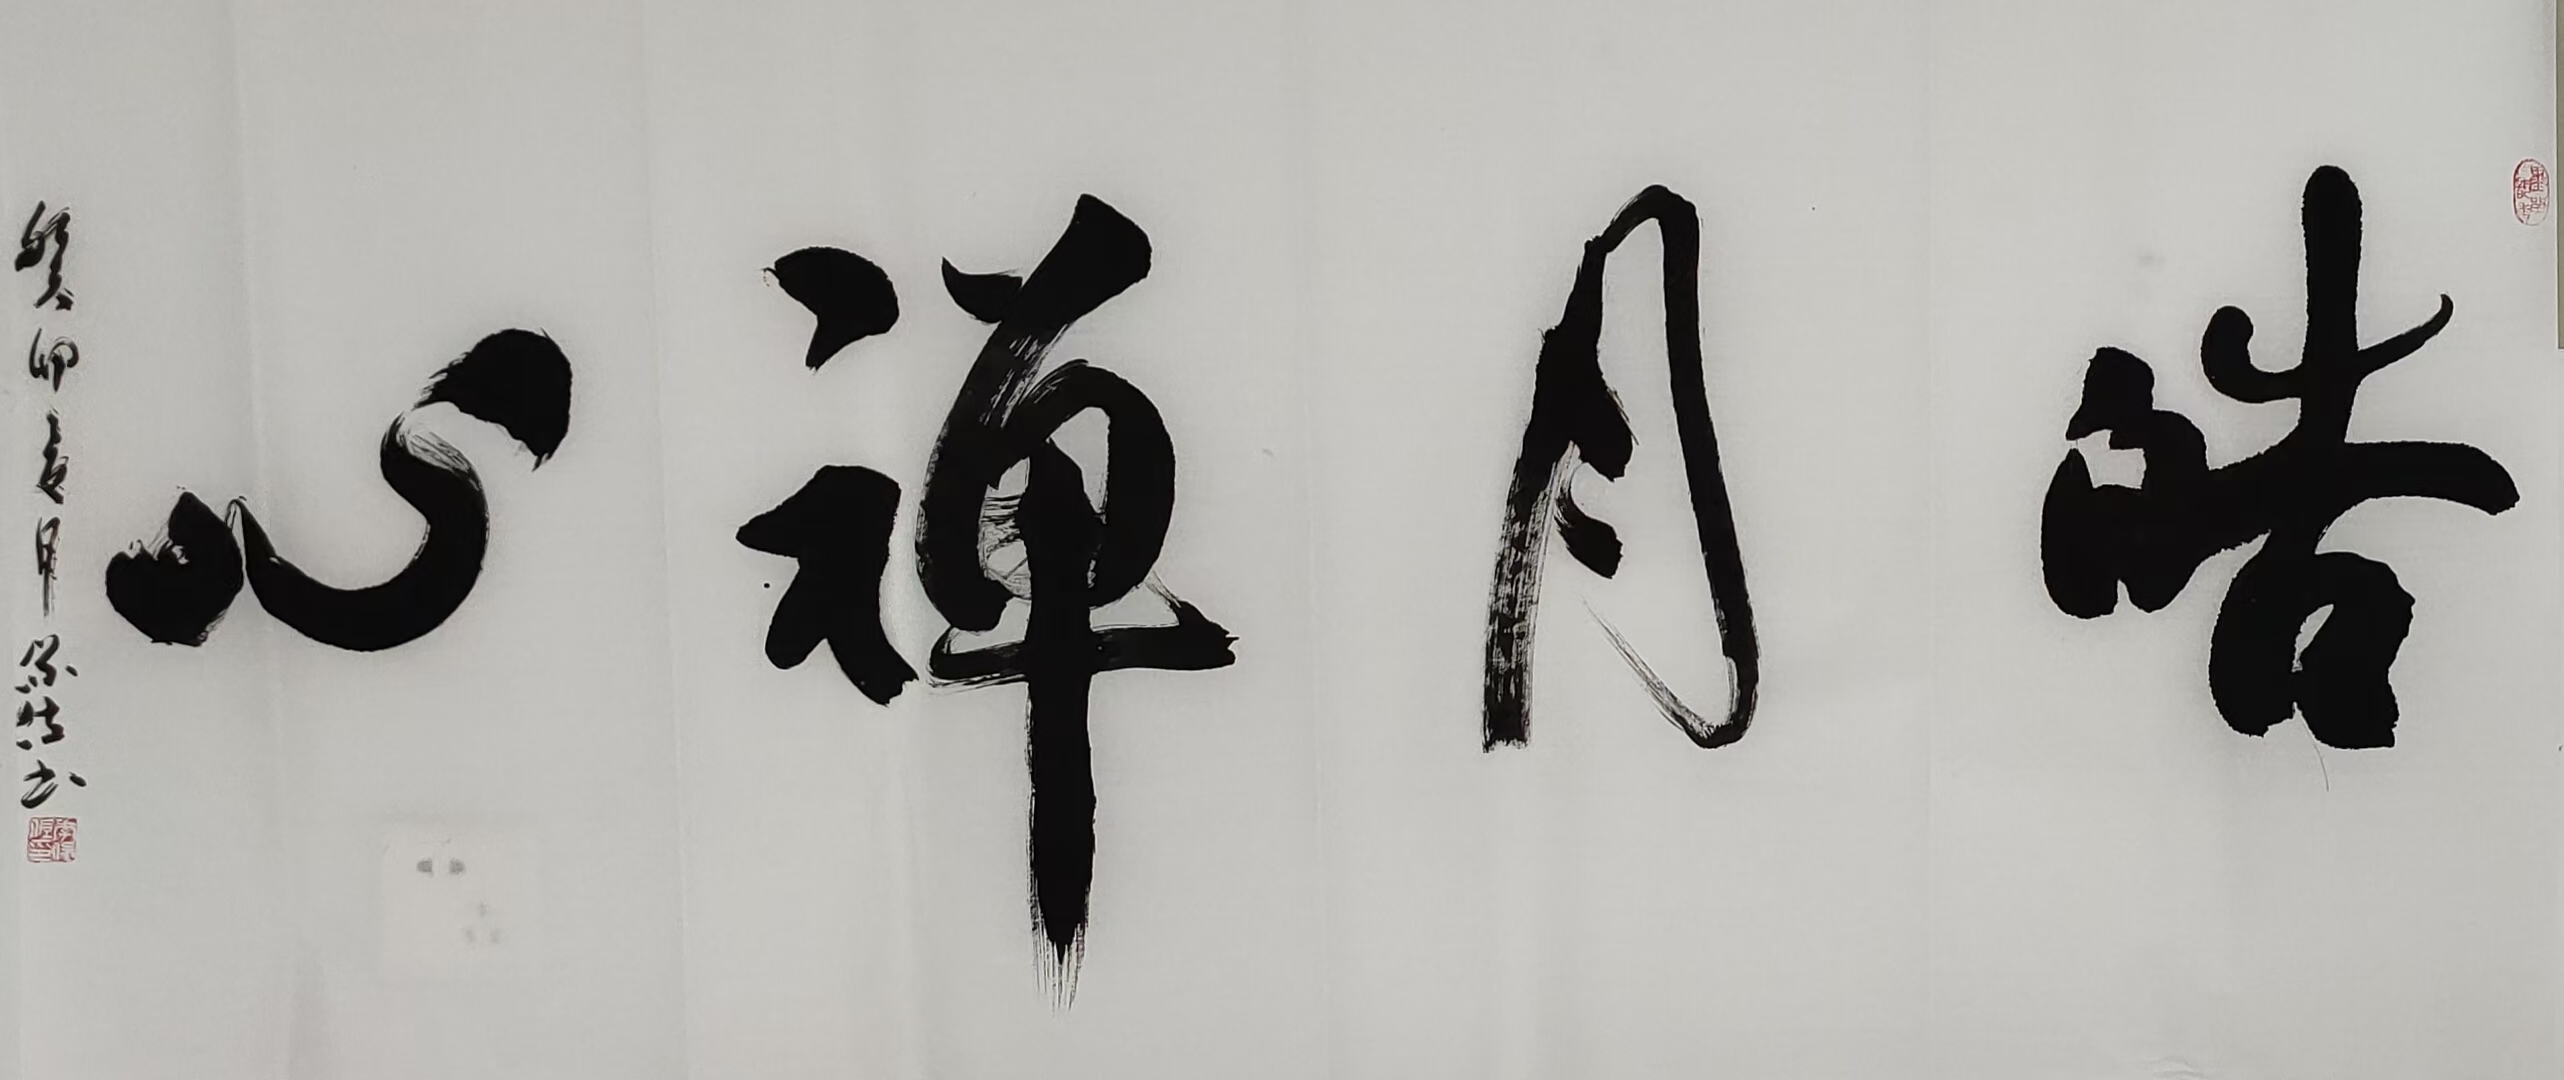 皓月禅心
癸卯夏月
书